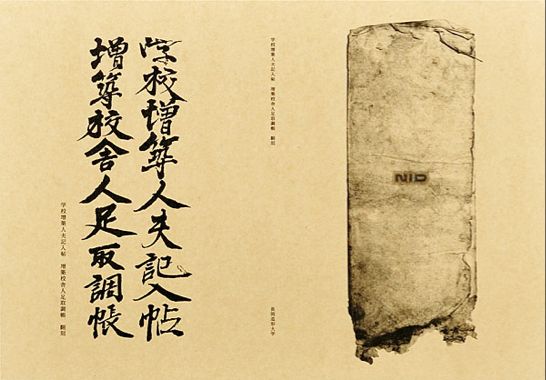 学校増築人夫記入帖
増築校舎人足取調帳
学校増築人夫記入帖 増築校舎人足取調帳 翻刻
学校増築人夫記入帖 増築校舎人足取調帳 翻刻
長岡造形大学
NID